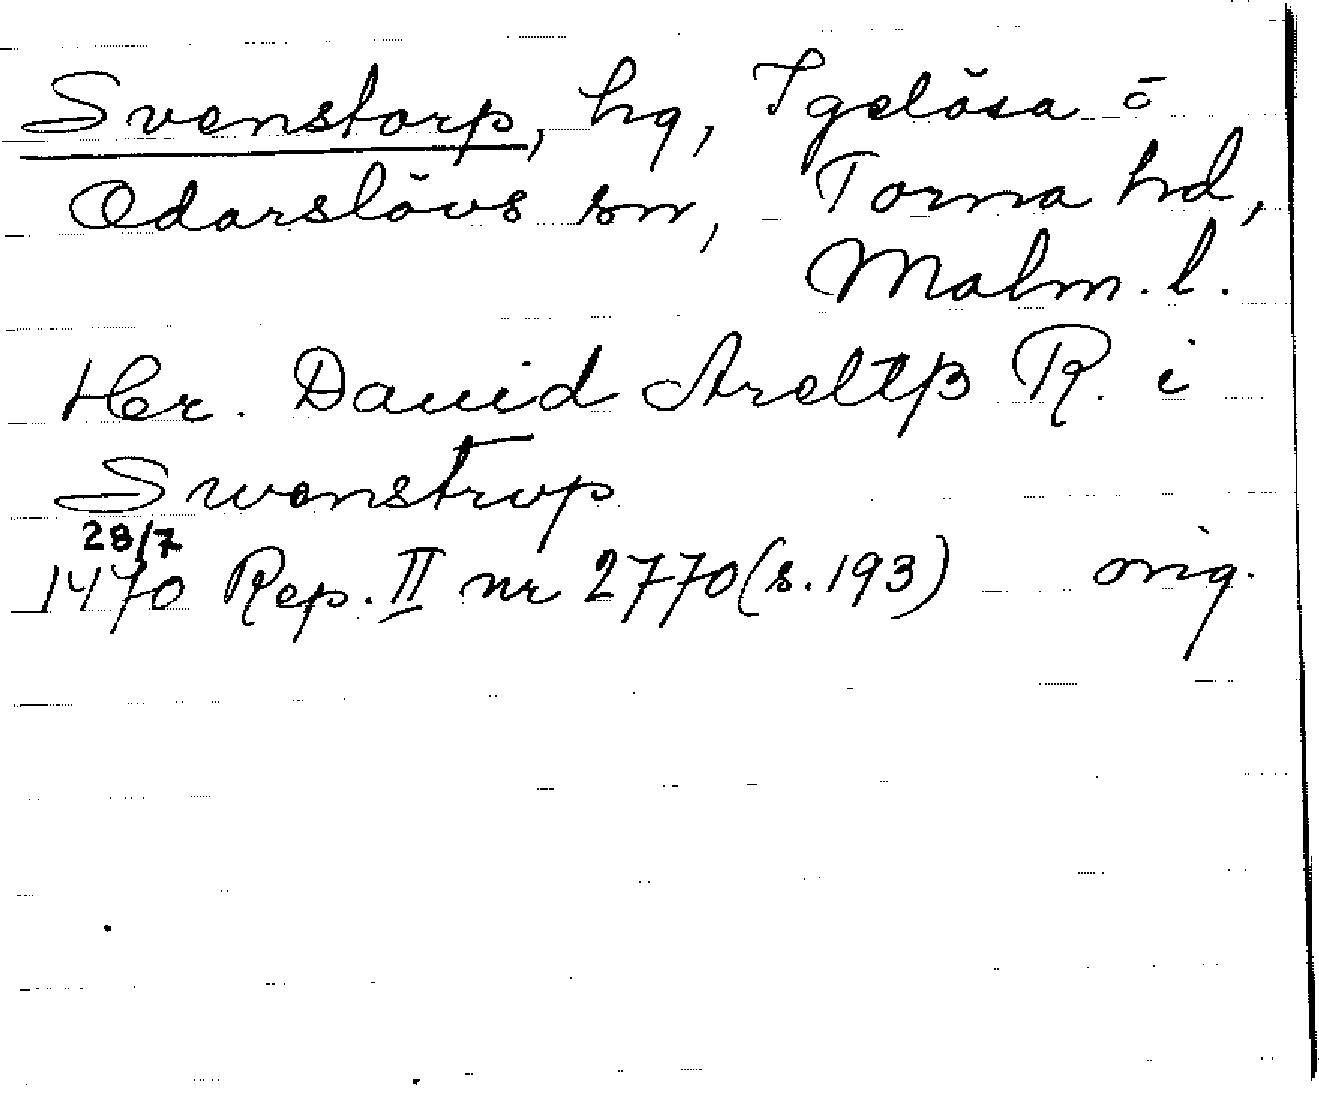 Svenstorp, hg, Igelösa o
Odarslövs sn, Torna hd,
Malm. l.
Her. Dauid Areltzß R. i
Swenstrvp
28/7
1470 Rep. II nr 2770 (s. 193) orig.